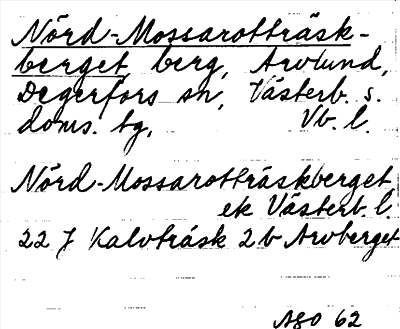 Nörd-Mossarotträsk-
berget, berg, Avolund,
Degerfors sn, Västerb. s.
doms. tg, Vb. l.
Nörd-Mossarotträskberget
ek Västerb. l.
22 J Kalvträsk 2b Avaberget
ASO 62